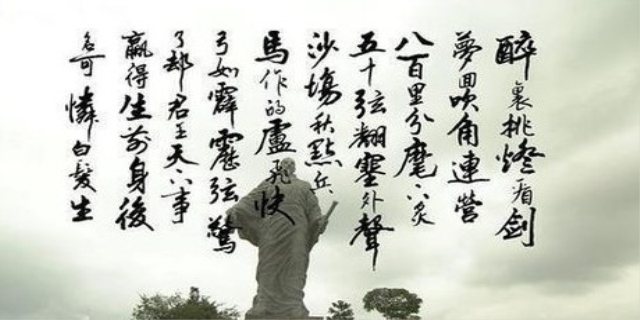 醉裏挑燈看劍
夢回吹角連營
八百里分麾下炙
五十弦翻塞外聲
沙場秋點兵
馬作的盧飛快
弓如霹靂弦驚
了卻君王天下事
贏得生前身後
名可憐白髮生